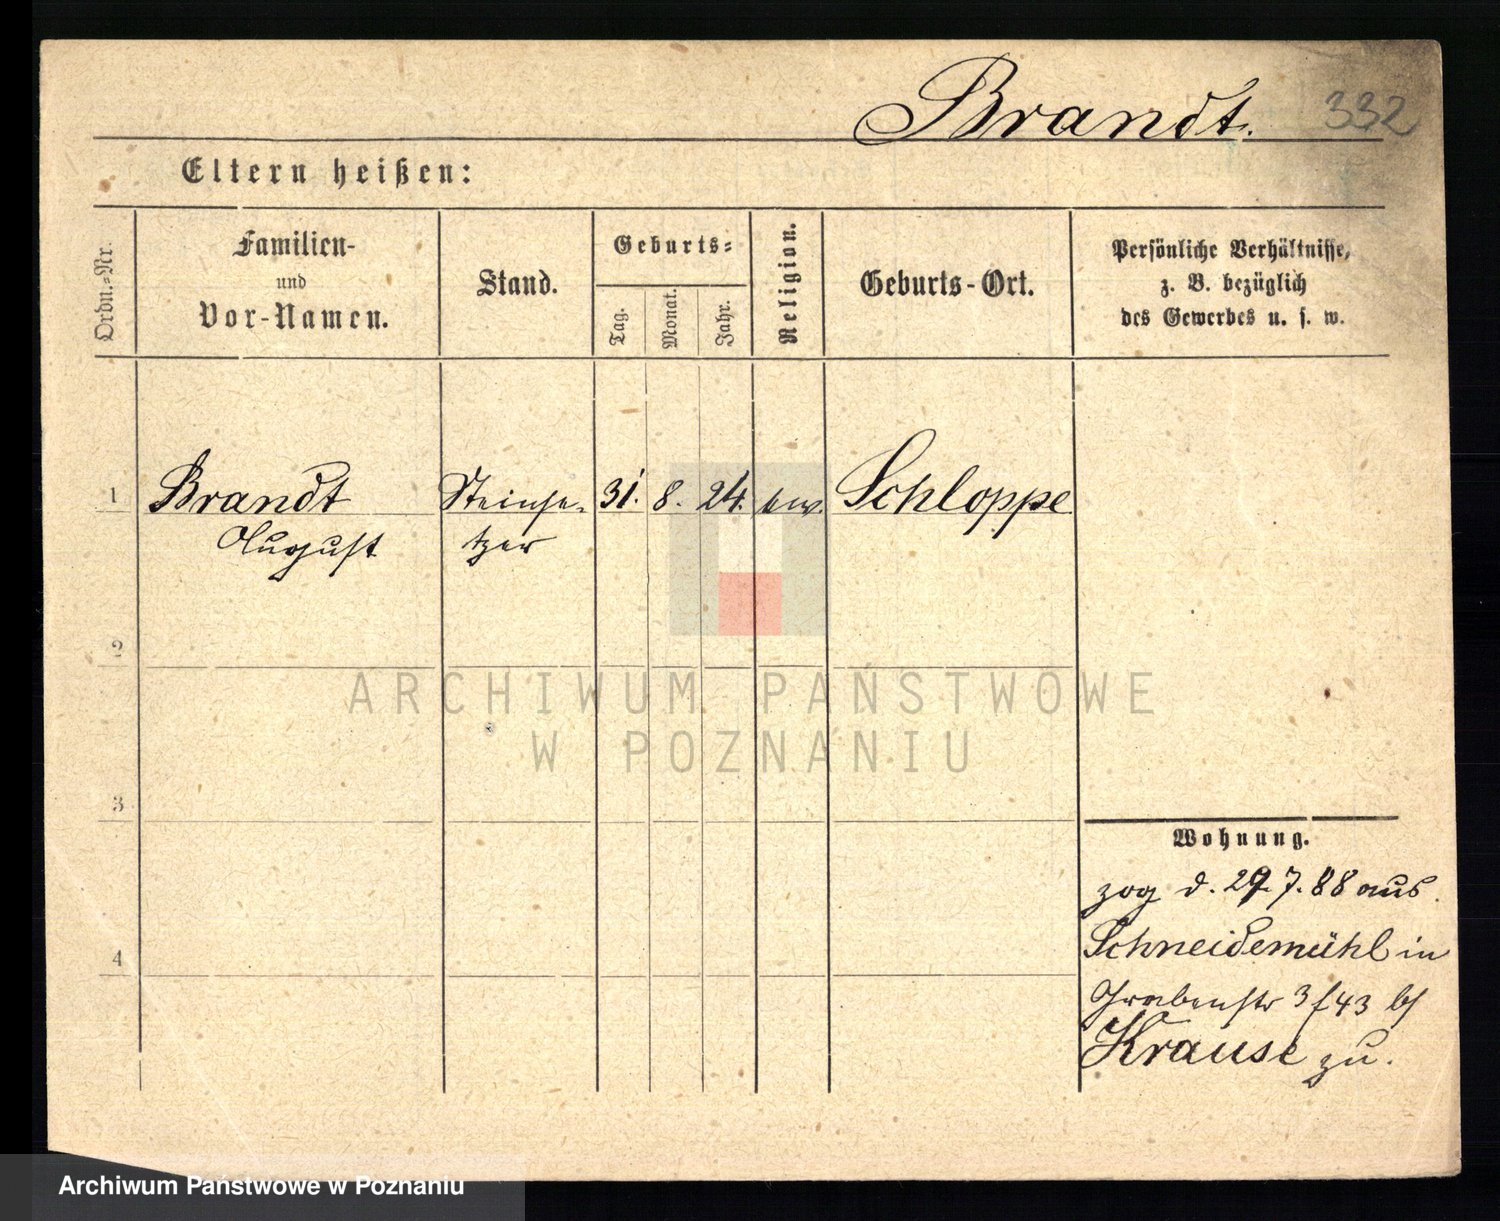 Brandt. 332
Eltern heißen:
Ordn.-Nr.
Familien-
und
Vor-Namen.
Stand.
Geburts-
Tag.
Monat.
Jahr.
Religion.
Geburts-Ort.
Persönliche Verhältnisse,
z. B. bezüglich
des Gewerbes u. s. w.
1 Brandt Steinse- 31. 8. 24. ew. Schloppe
August tzer
2
ARCHIWUM PAŃSTWOWE
W POZNANIU
3
Wohnung.
zog d. 29.7.88 aus
Schneidemühl in
4
Grabenstr 3/43 bei
Krause zu.
Archiwum Państwowe w Poznaniu